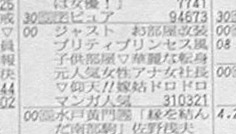 は女優！」 7741
30 デピュア 94673
00 ジャスト お部屋改装
プリティプリンセス風
子供部屋▽華麗な転身
元人気女性アナ女社長
▽仰天!!嫁姑ドロドロ
マンガ人気 310321
00 水戸黄門 「縁を結ん
だ南部駒」佐野茂夫
30
00
08
00
00
44
02